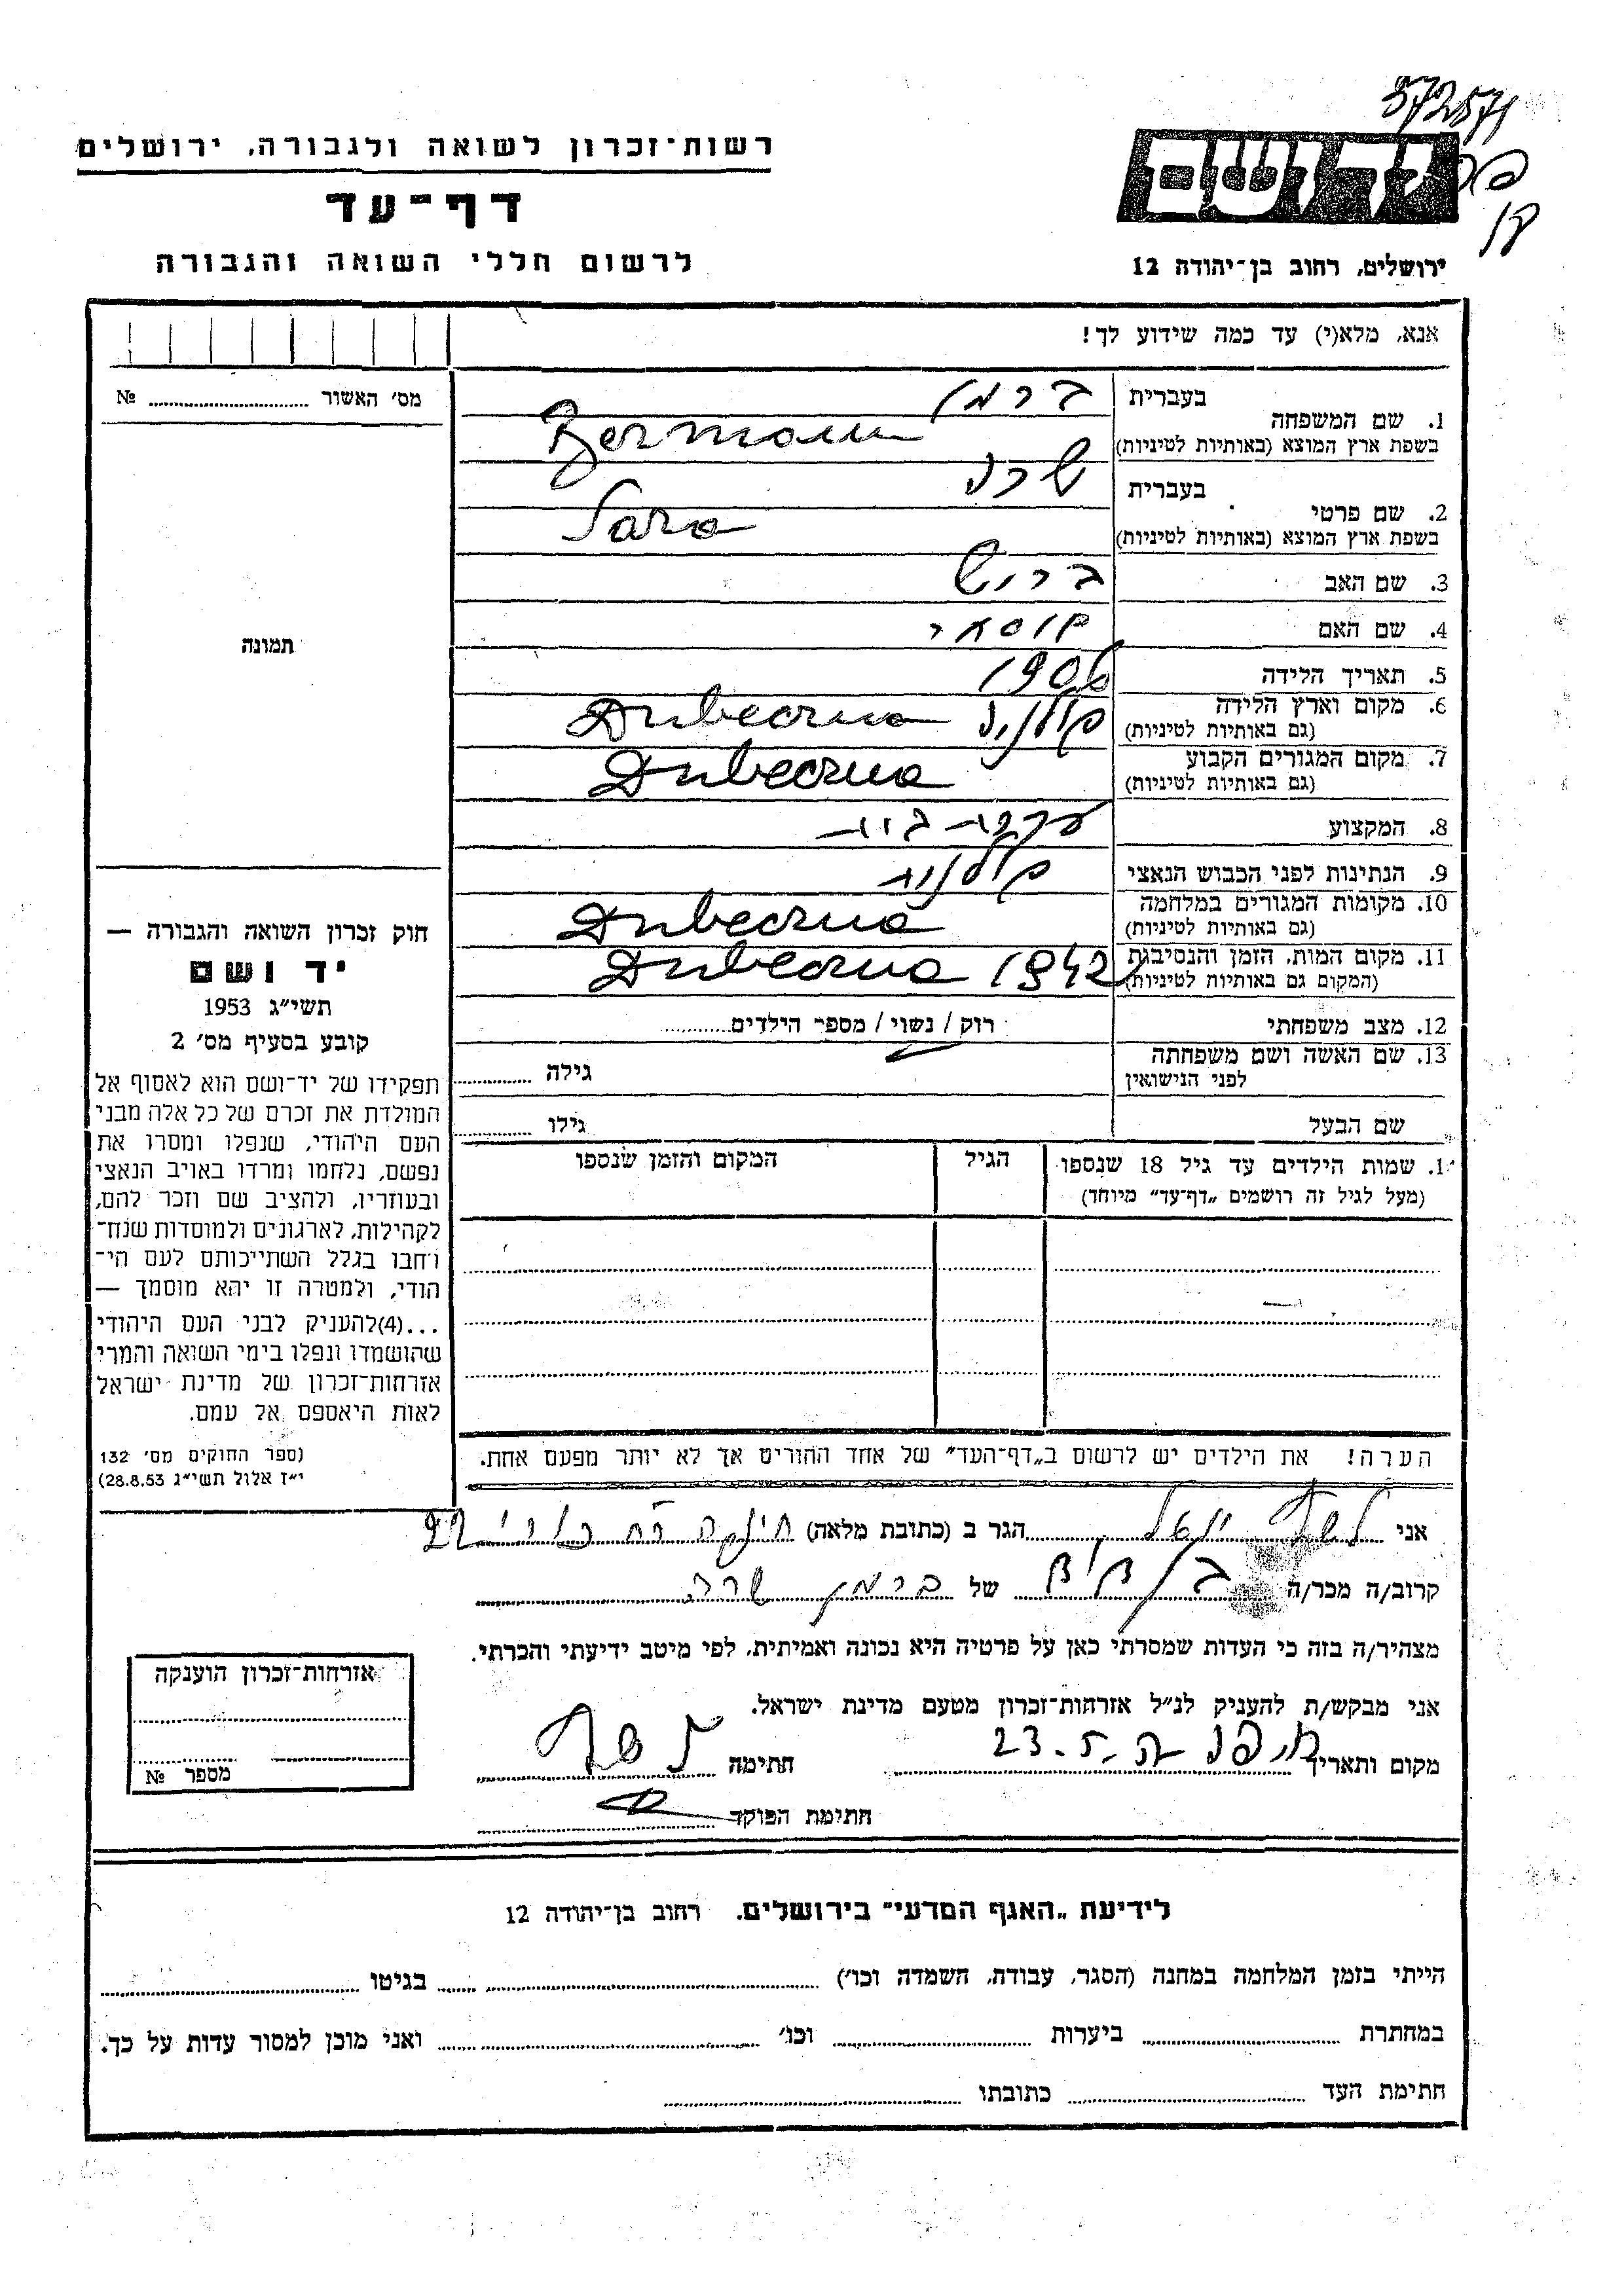 572571
רשות־זכרון לשואה ולגבורה, ירושלים
ידושם
דף־עד
לרשום חללי השואה והגבורה
ירושלים, רחוב בן־יהודה 12
אנא, מלא(י) עד כמה שידוע לך!
מס׳ האשור № 
1. שם המשפחה
בעברית ברמן
בשפת ארץ המוצא (באותיות לטיניות) Berman
2. שם פרטי
בעברית שרה
בשפת ארץ המוצא (באותיות לטיניות) Sara
3. שם האב ברוש
4. שם האם
5. תאריך הלידה 1906
6. מקום וארץ הלידה
(גם באותיות לטיניות) פולניה Dubeczna
7. מקום המגורים הקבוע
(גם באותיות לטיניות) Dubeczna
8. המקצוע עקרת־בית
9. הנתינות לפני הכבוש הנאצי פולנית
10. מקומות המגורים במלחמה
(גם באותיות לטיניות) Dubeczna
11. מקום המות, הזמן והנסיבות
(המקום גם באותיות לטיניות) Dubeczna 1942
12. מצב משפחתי רוק / נשוי / מספר הילדים
13. שם האשה ושם משפחתה
לפני הנישואין גילה
שם הבעל גילו
1. שמות הילדים עד גיל 18 שנספו הגיל המקום והזמן שנספו
(מעל לגיל זה רושמים „דף־עד” מיוחד)
הערה! את הילדים יש לרשום ב„דף־העד” של אחד ההורים אך לא יותר מפעם אחת.
תמונה
חוק זכרון השואה והגבורה —
יד ושם
תשי״ג 1953
קובע בסעיף מס׳ 2
תפקידו של יד־ושם הוא לאסוף אל
המולדת את זכרם של כל אלה מבני
העם היהודי, שנפלו ומסרו את
נפשם, נלחמו ומרדו באויב הנאצי
ובעוזריו, ולהציב שם וזכר להם,
לקהילות, לארגונים ולמוסדות שנח־
רחבו בגלל השתייכותם לעם הי־
הודי, ולמטרה זו יהא מוסמך —
...(4)להעניק לבני העם היהודי
שהושמדו ונפלו בימי השואה והמרי
אזרחות־זכרון של מדינת ישראל
לאות היאספם אל עמם.
(ספר החוקים מס׳ 132
י״ז אלול תשי״ג 28.8.53)
אני יואל הגר ב (כתובת מלאה) חיפה רח
קרוב/ה מכר/ה של ברמן שרה
מצהיר/ה בזה כי העדות שמסרתי כאן על פרטיה היא נכונה ואמיתית, לפי מיטב ידיעתי והכרתי.
אני מבקש/ת להעניק לנ״ל אזרחות־זכרון מטעם מדינת ישראל.
מקום ותאריך חיפה 23.5. חתימה
חתימת הפוקד
אזרחות־זכרון הוענקה
מספר №
לידיעת „האגף המדעי” בירושלים, רחוב בן־יהודה 12
הייתי בזמן המלחמה במחנה (הסגר, עבודת, השמדה וכו׳) בגיטו
במחתרת ביערות וכו׳ ואני מוכן למסור עדות על כך.
חתימת העד כתובתו